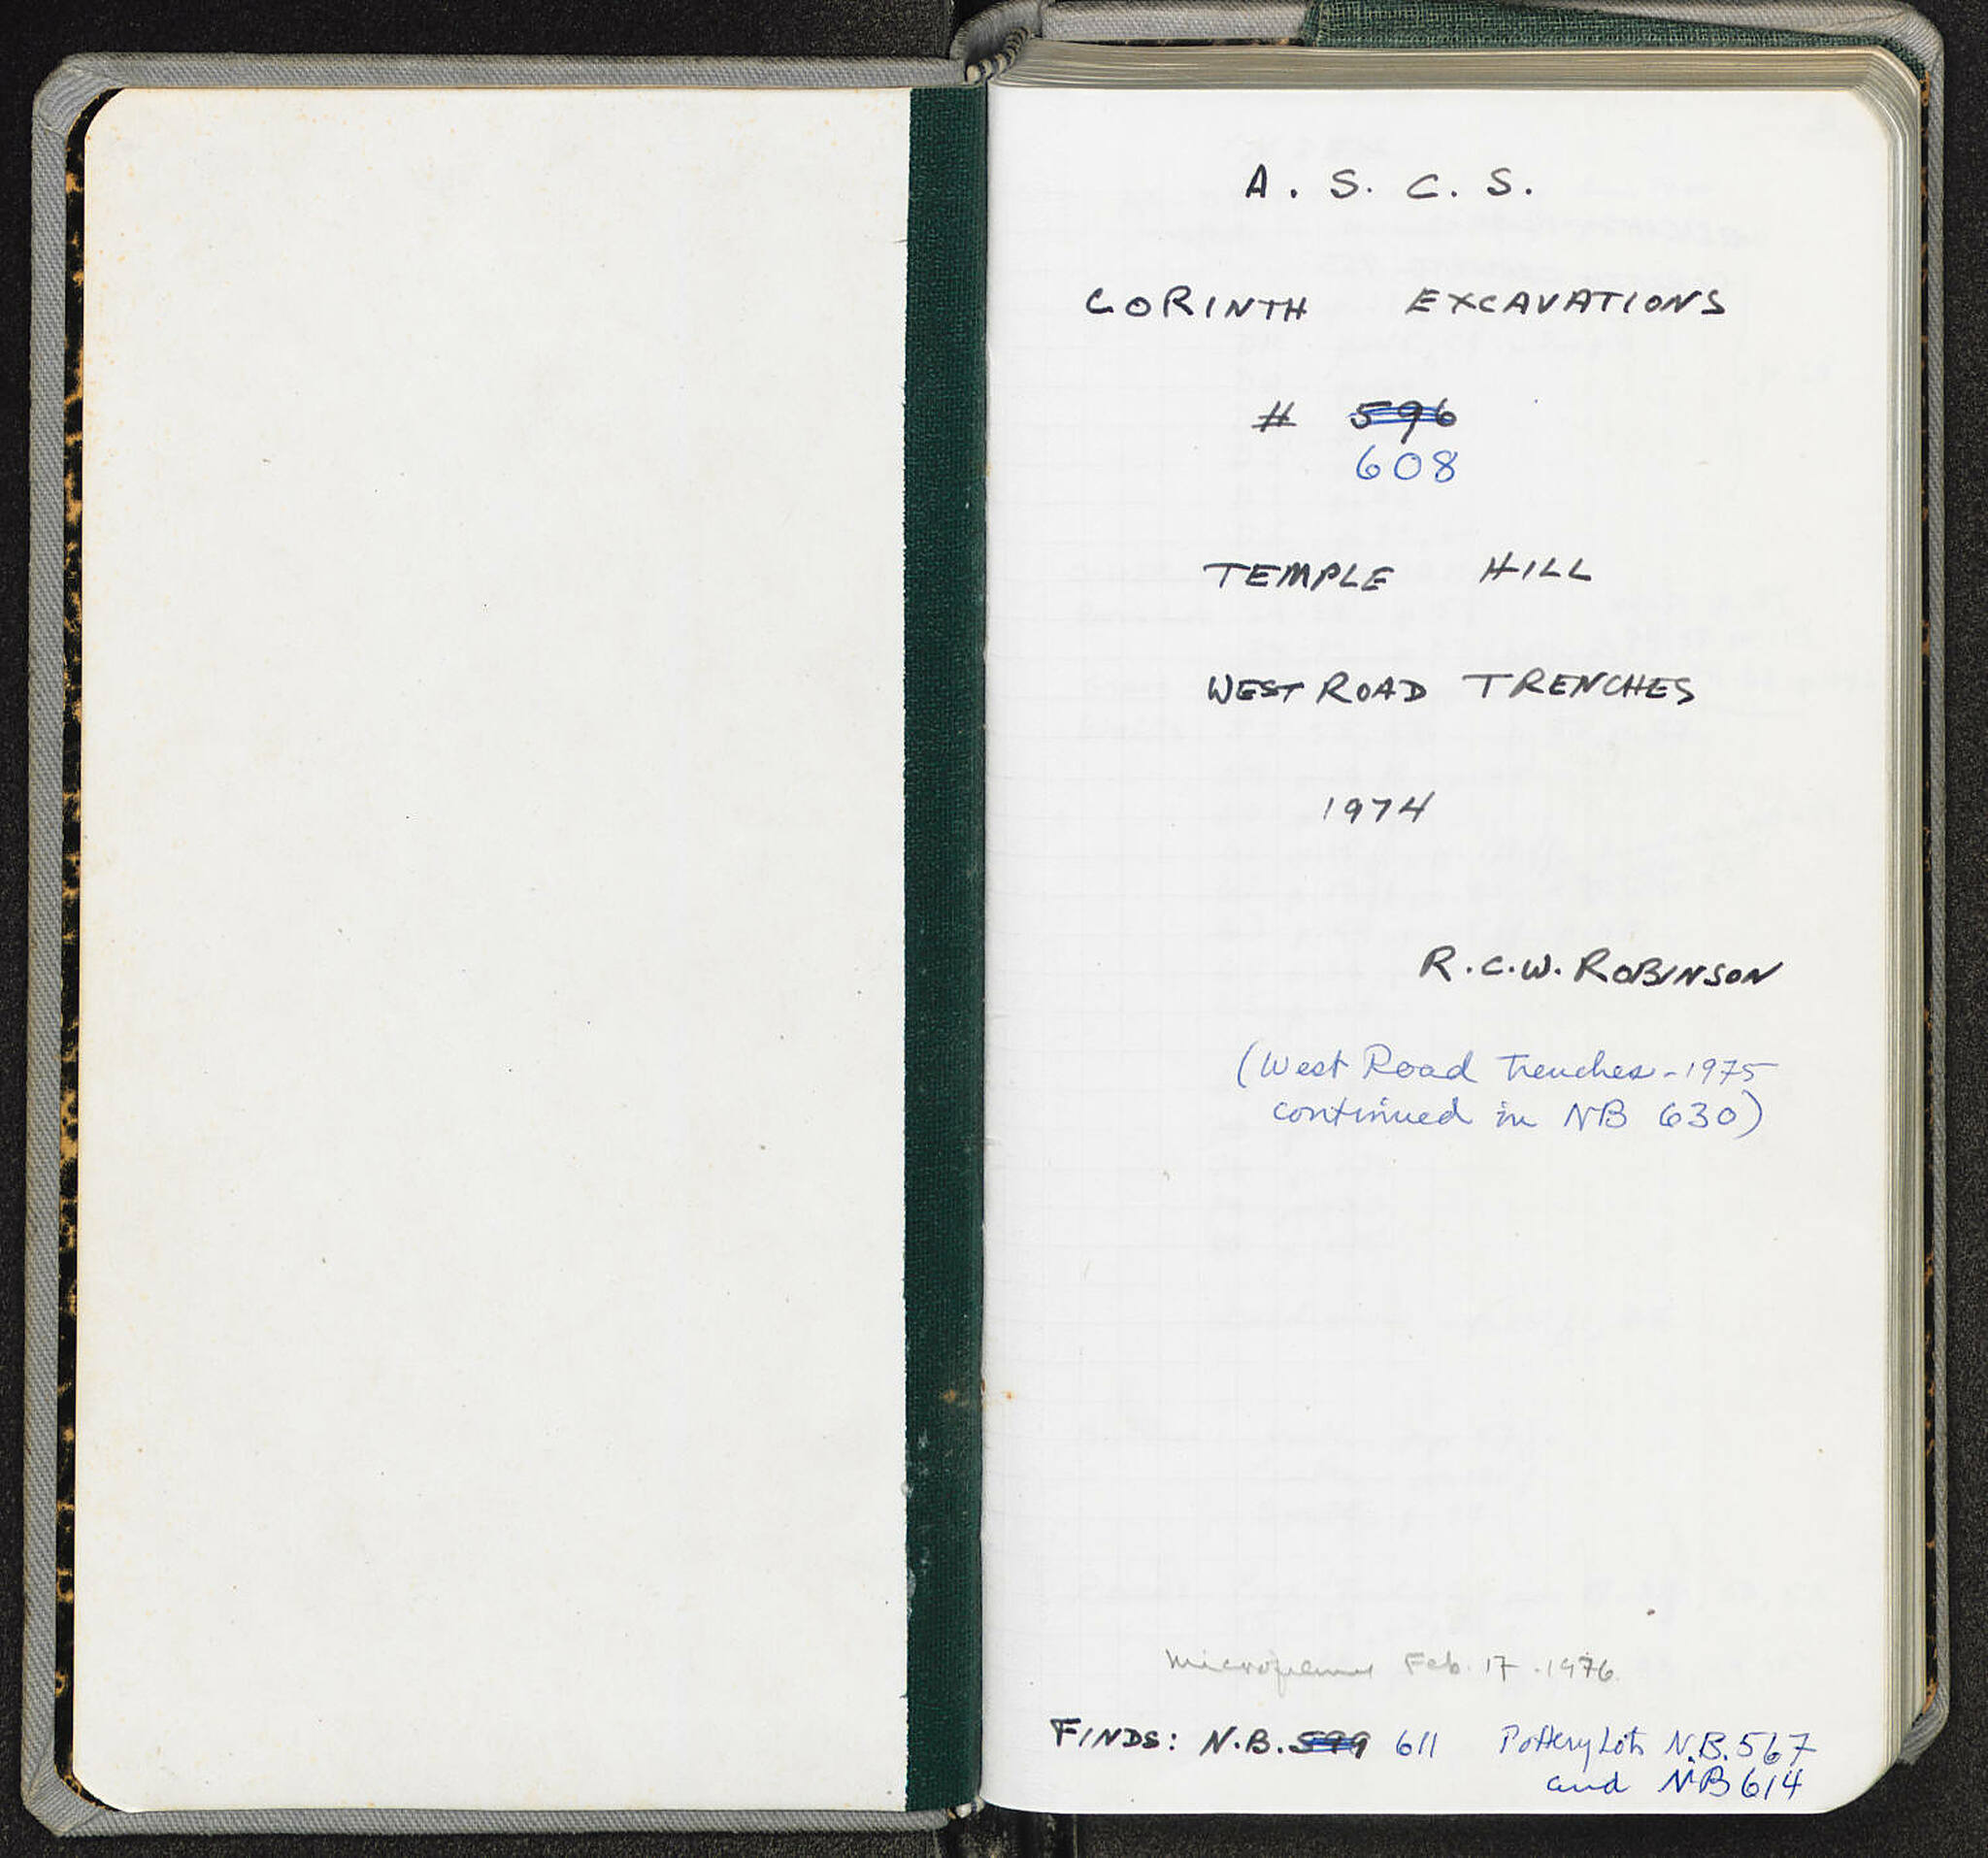 A. S. C. S.
CORINTH EXCAVATIONS
# 596
608
TEMPLE HILL
WEST ROAD TRENCHES
1974
R.C.W. ROBINSON
(West Road Trenches - 1975
continued in NB 630)
Feb. 17. 1976.
FINDS: N.B. 599 611 Pottery Lots N.B. 567
and NB 614